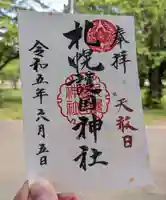 奉拝
天赦日
札幌護国神社
令和五年六月五日